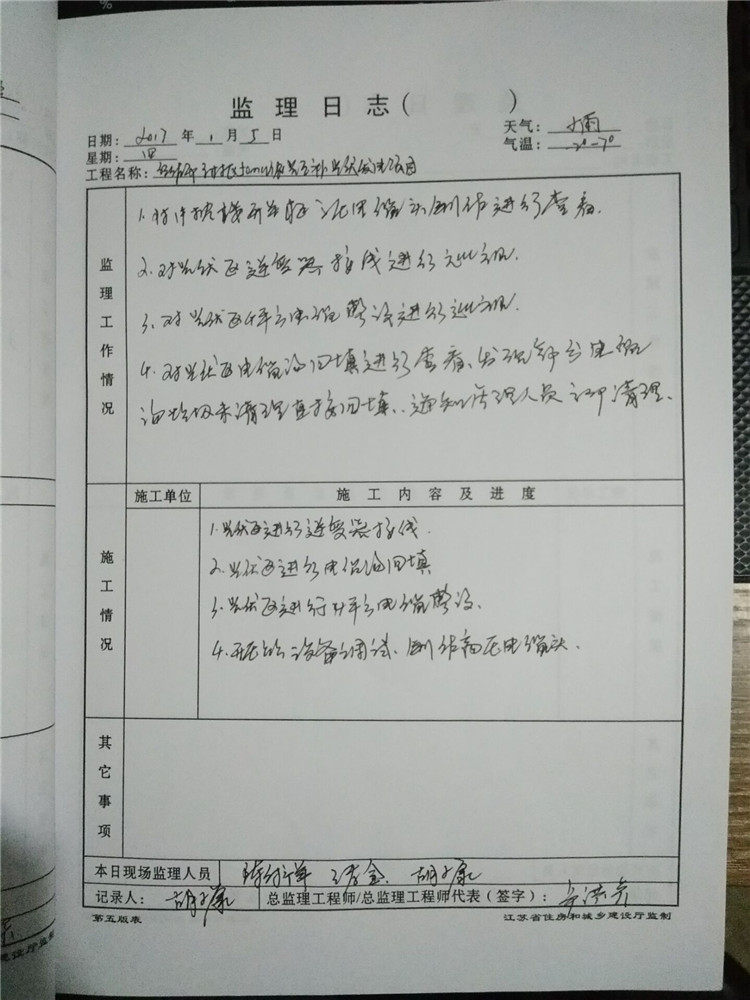 监理日志( )
日期: 2017 年 1 月 5 日
天气: 小雨
星期: 四
气温: 2°-7°
工程名称:
监理工作情况
1.对 进行查看.
2.对光伏区逆变器接线进行巡视.
3.对光伏区 电缆敷设进行巡视.
4.对光伏区电缆沟回填进行查看、发现部分电缆
沟垃圾未清理直接回填、通知管理人员立即清理.
施工单位 施工内容及进度
施工情况
1.光伏区进行逆变器接线.
2.光伏区进行电缆沟回填
3.光伏区进行 电缆敷设.
4. 设备调试、制作高压电缆头.
其它事项
本日现场监理人员
记录人: 总监理工程师/总监理工程师代表(签字):
第五版表 江苏省住房和城乡建设厅监制